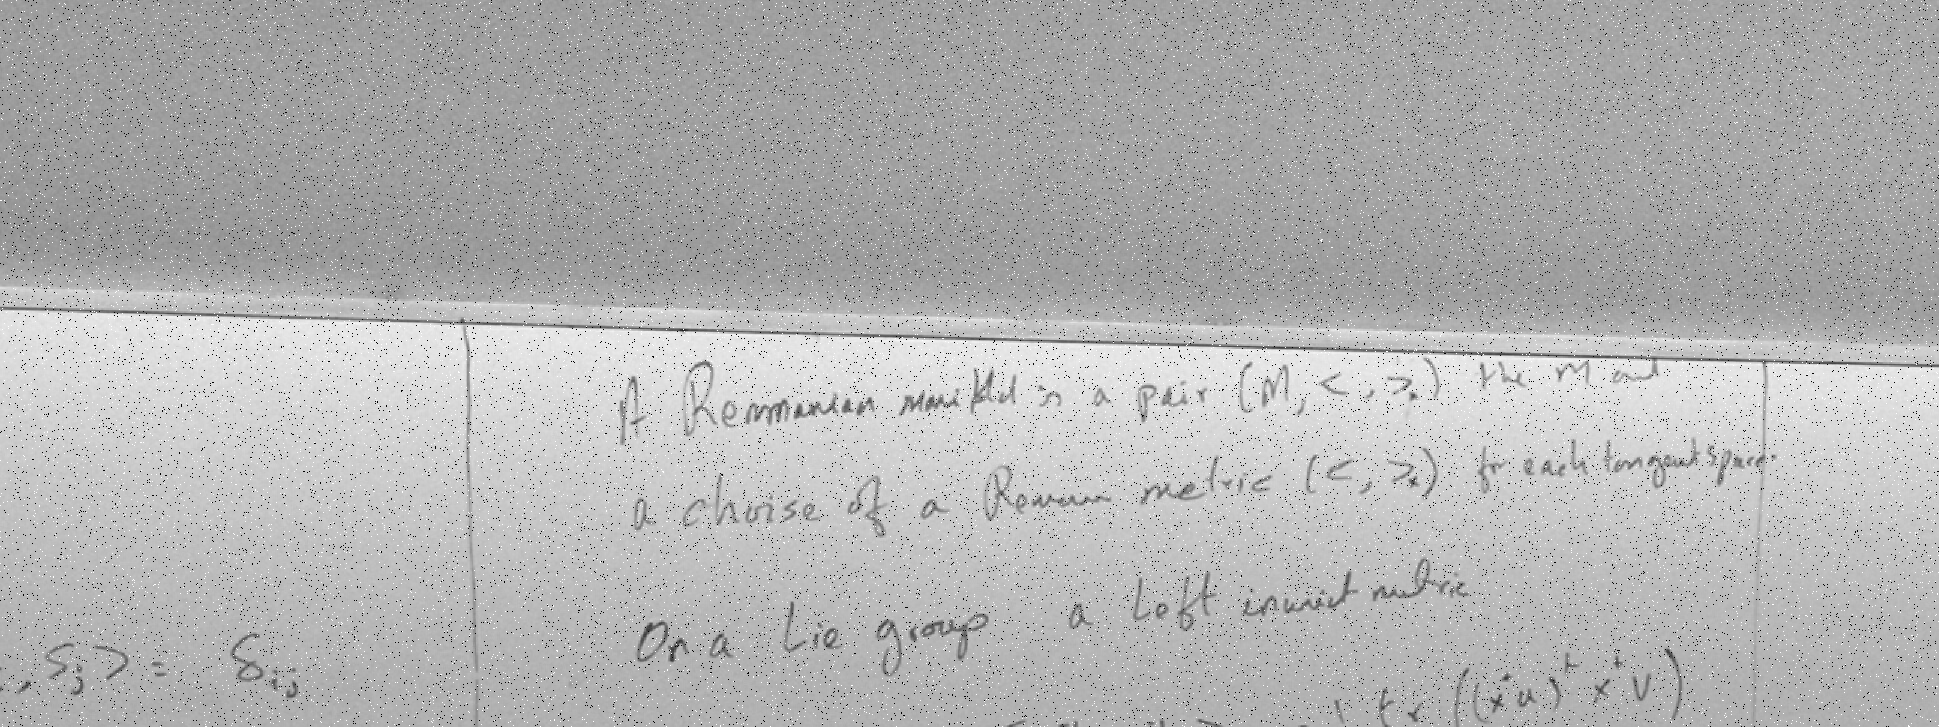 A Remmanian manifold is a pair (M, < , >.) the M and
a choise of a Remman metric (< , >.) for each tangent space.
On a Lie group a Left invariant metric
, Sj > = δij
tr ((x⁻¹u)ᵗ x⁻¹ v)